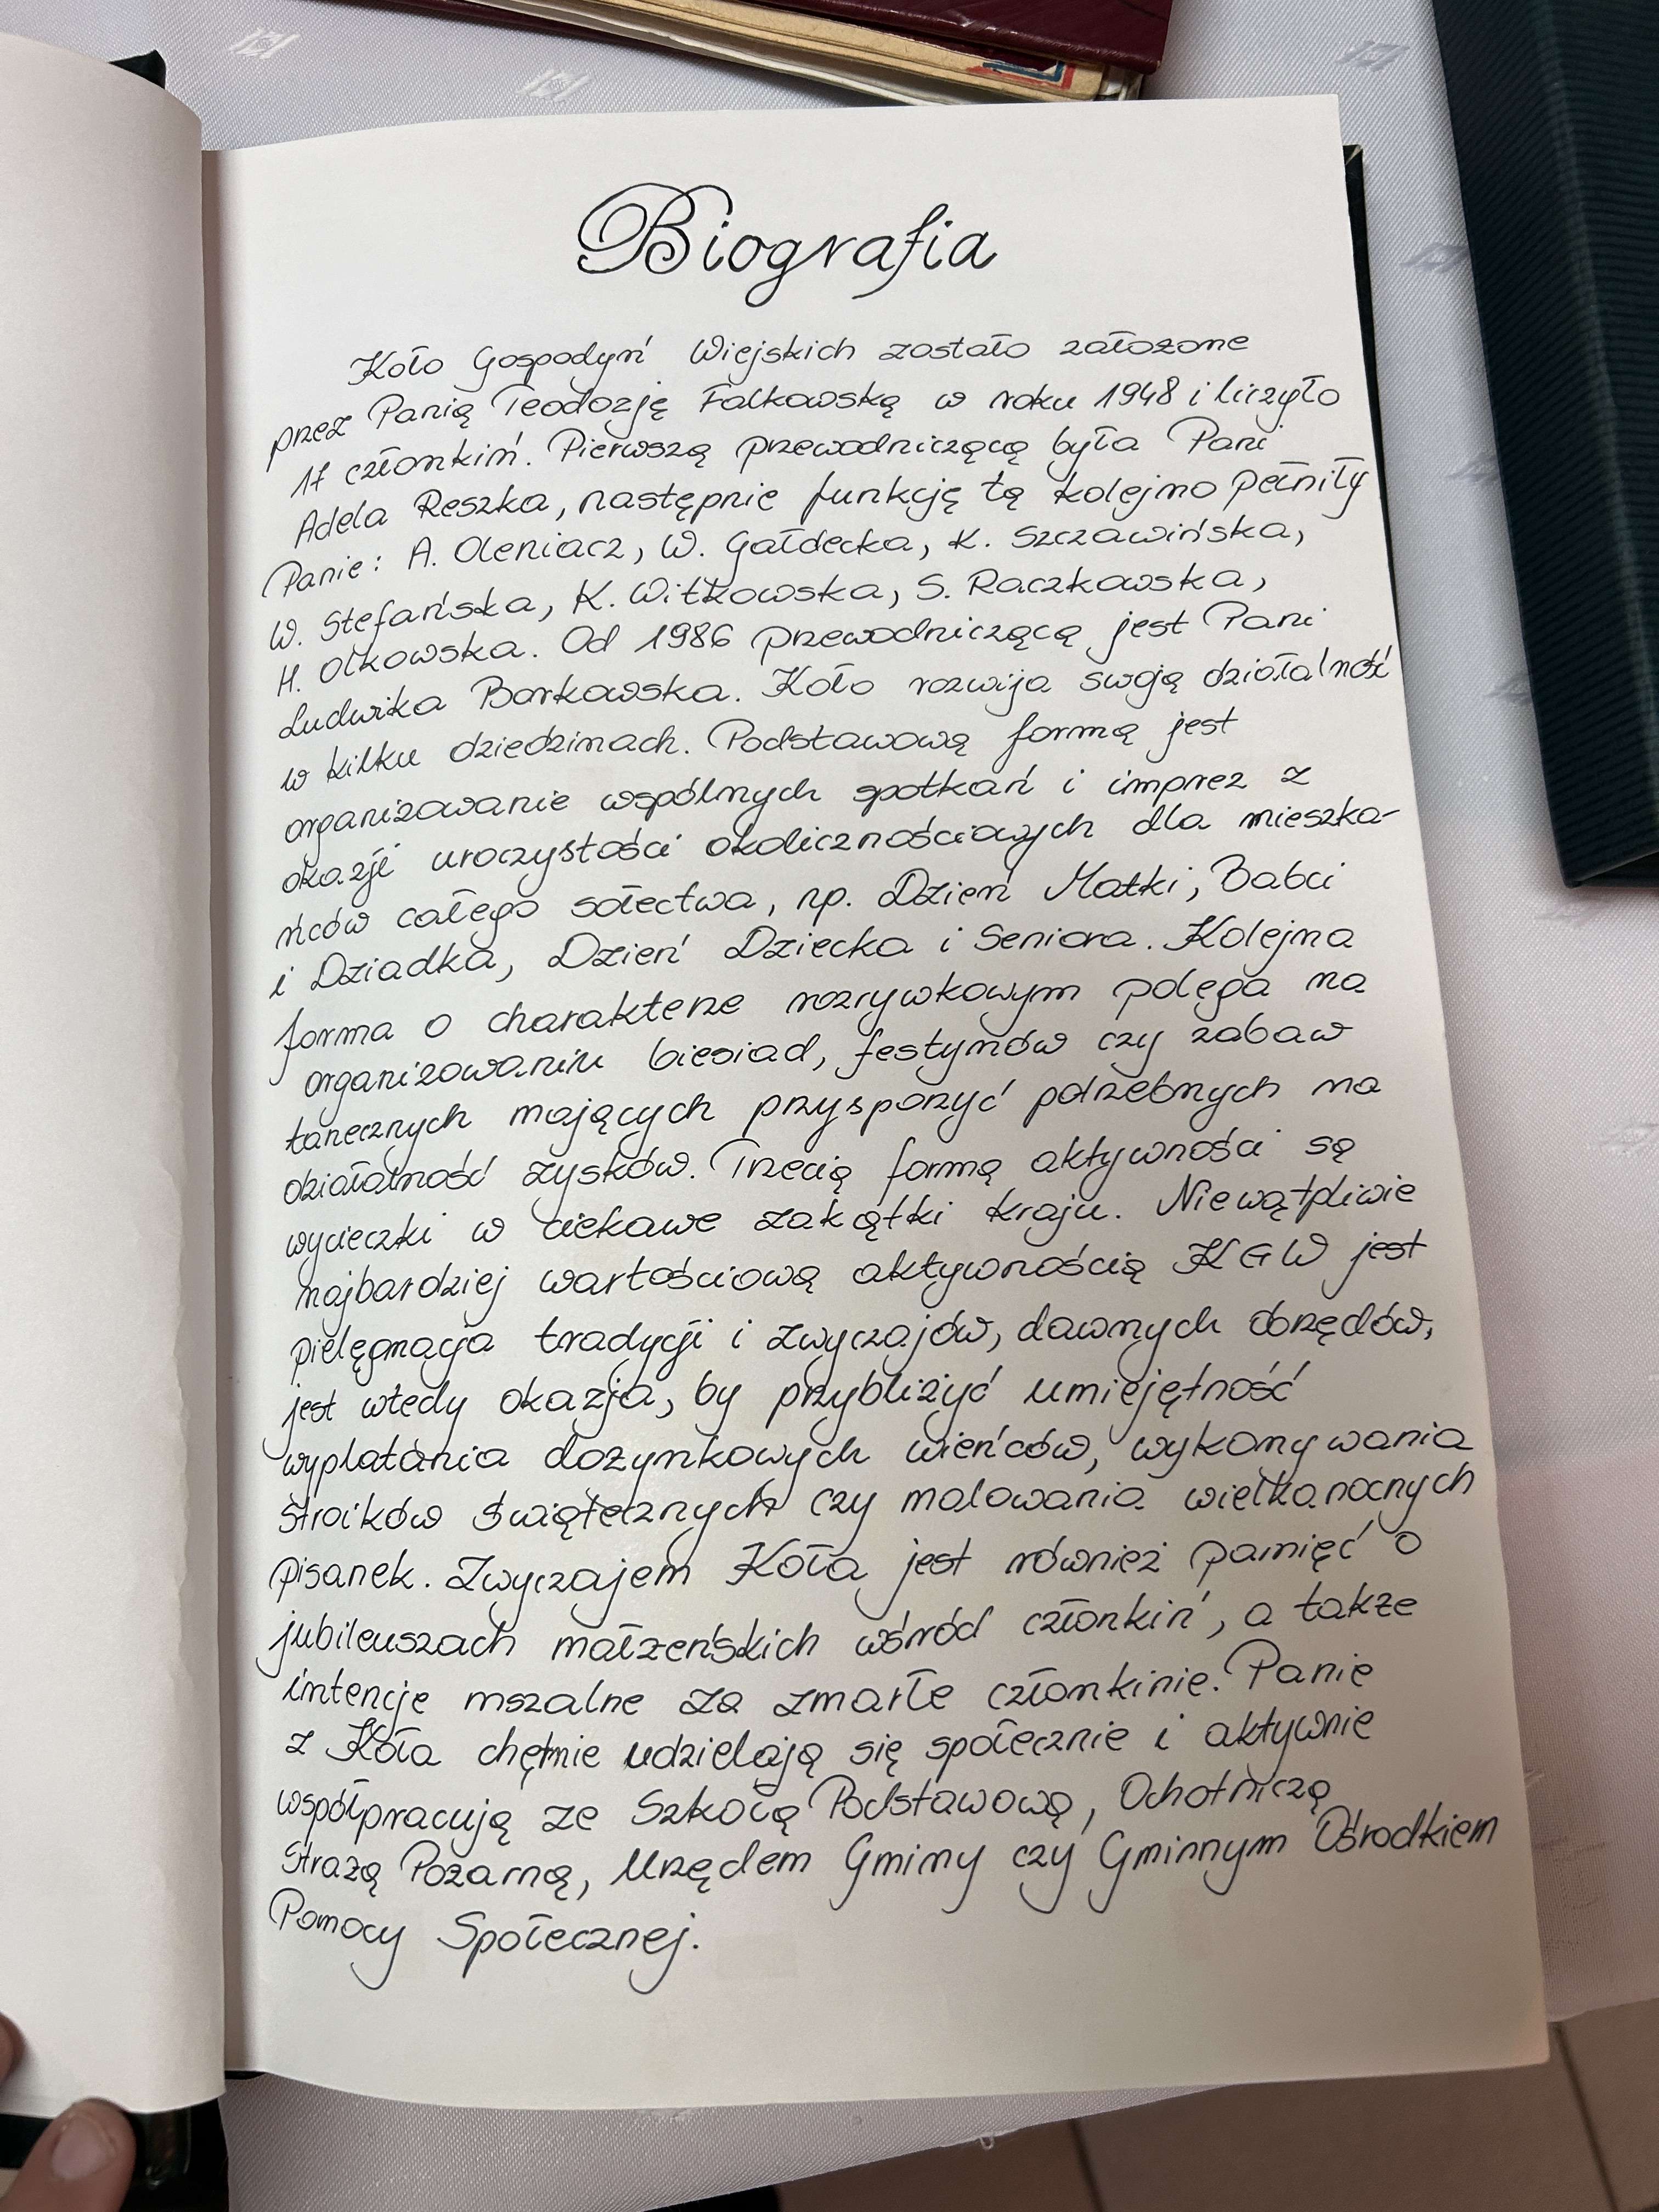 Biografia
Koło Gospodyń Wiejskich zostało założone
przez Panią Teodozję Falkowską w roku 1948 i liczyło
17 członkiń. Pierwszą przewodniczącą była Pani
Adela Reszka, następnie funkcję tą kolejno pełniły
Panie: A. Oleniacz, W. Gałdecka, K. Szczawińska,
W. Stefańska, K. Witkowska, S. Raczkowska,
H. Olkowska. Od 1986 przewodniczącą jest Pani
Ludwika Borkowska. Koło rozwija swoją działalność
w kilku dziedzinach. Podstawową formą jest
organizowanie wspólnych spotkań i imprez z
okazji uroczystości okolicznościowych dla mieszka-
ńców całego sołectwa, np. Dzień Matki, Babci
i Dziadka, Dzień Dziecka i Seniora. Kolejna
forma o charakterze rozrywkowym polega na
organizowaniu biesiad, festynów czy zabaw
tanecznych mających przysporzyć potrzebnych na
działalność zysków. Trzecią formą aktywności są
wycieczki w ciekawe zakątki kraju. Niewątpliwie
najbardziej wartościową aktywnością KGW jest
pielęgnacja tradycji i zwyczajów, dawnych obrzędów,
jest wtedy okazja, by przybliżyć umiejętność
wyplatania dożynkowych wieńców, wykonywania
stroików świątecznych czy malowania wielkanocnych
pisanek. Zwyczajem Koła jest również pamięć o
jubileuszach małżeńskich wśród członkiń, a także
intencje mszalne za zmarłe członkinie. Panie
z Koła chętnie udzielają się społecznie i aktywnie
współpracują ze Szkołą Podstawową, Ochotniczą
Strażą Pożarną, Urzędem Gminy czy Gminnym Ośrodkiem
Pomocy Społecznej.